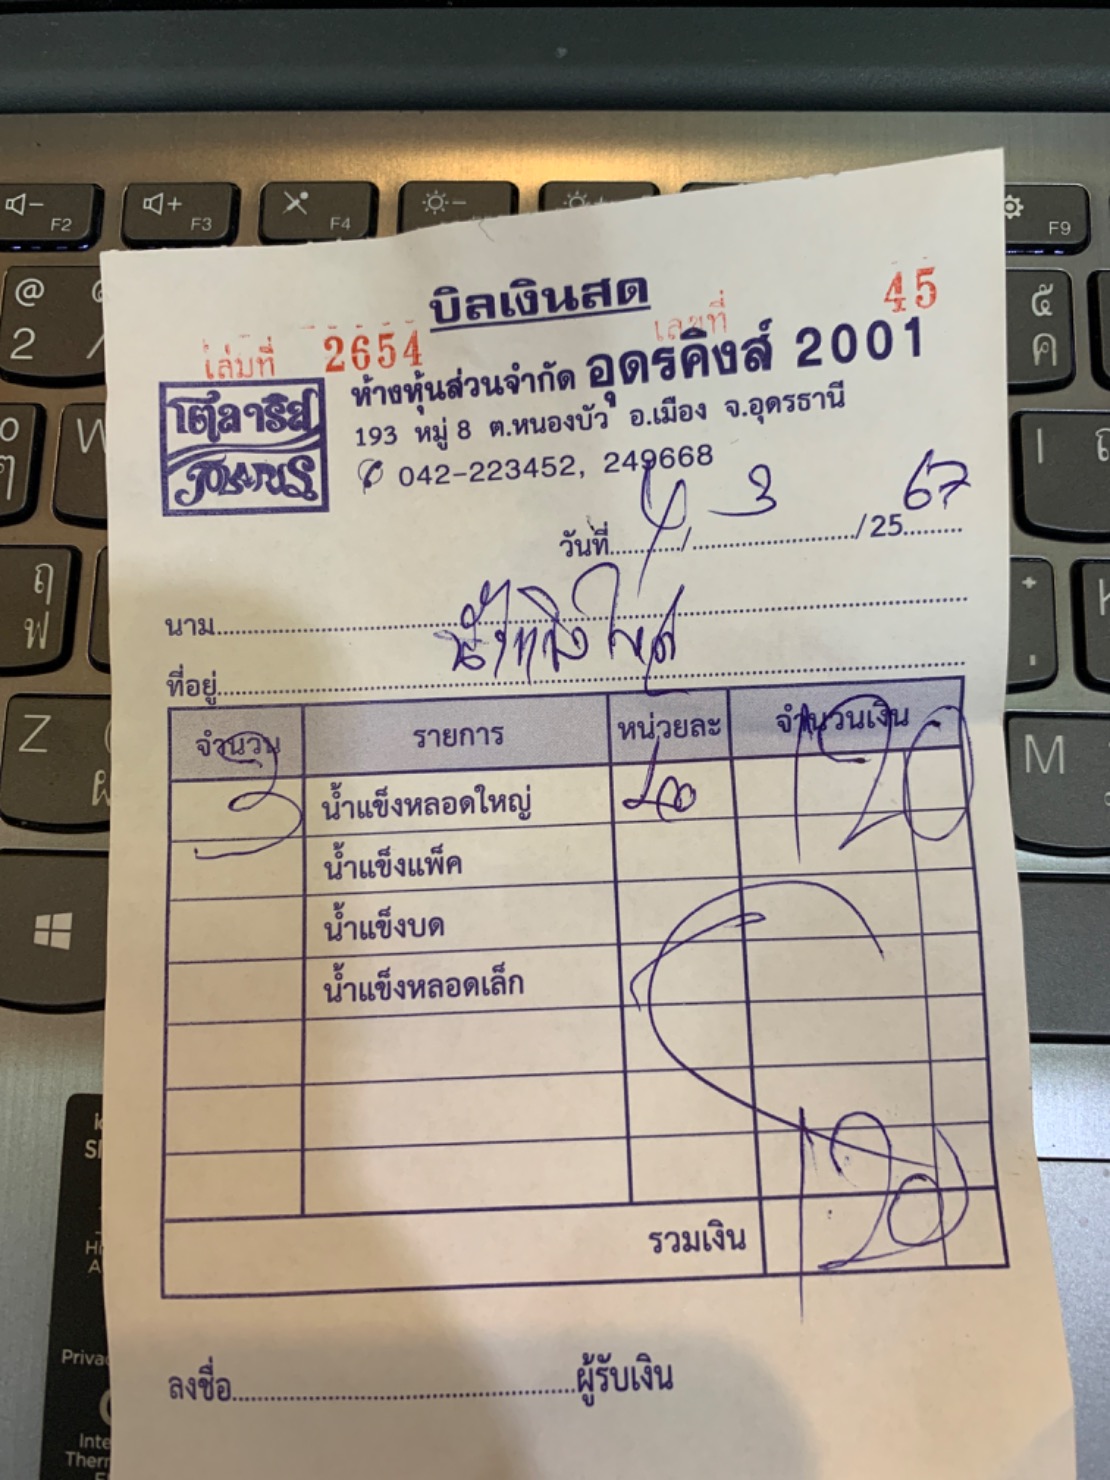 บิลเงินสด
เล่มที่ 2654 เลขที่ 45
ห้างหุ้นส่วนจำกัด อุดรคิงส์ 2001
โตลาริส
193 หมู่ 8 ต.หนองบัว อ.เมือง จ.อุดรธานี
042-223452, 249668
วันที่ 4 / 3 / 2567
นาม
ที่อยู่
จำนวน รายการ หน่วยละ จำนวนเงิน
3 น้ำแข็งหลอดใหญ่ 40 120
น้ำแข็งแพ็ค
น้ำแข็งบด
น้ำแข็งหลอดเล็ก
รวมเงิน 120
ลงชื่อ ผู้รับเงิน
F2 F3 F4 F9
@ 2
W
Z
M